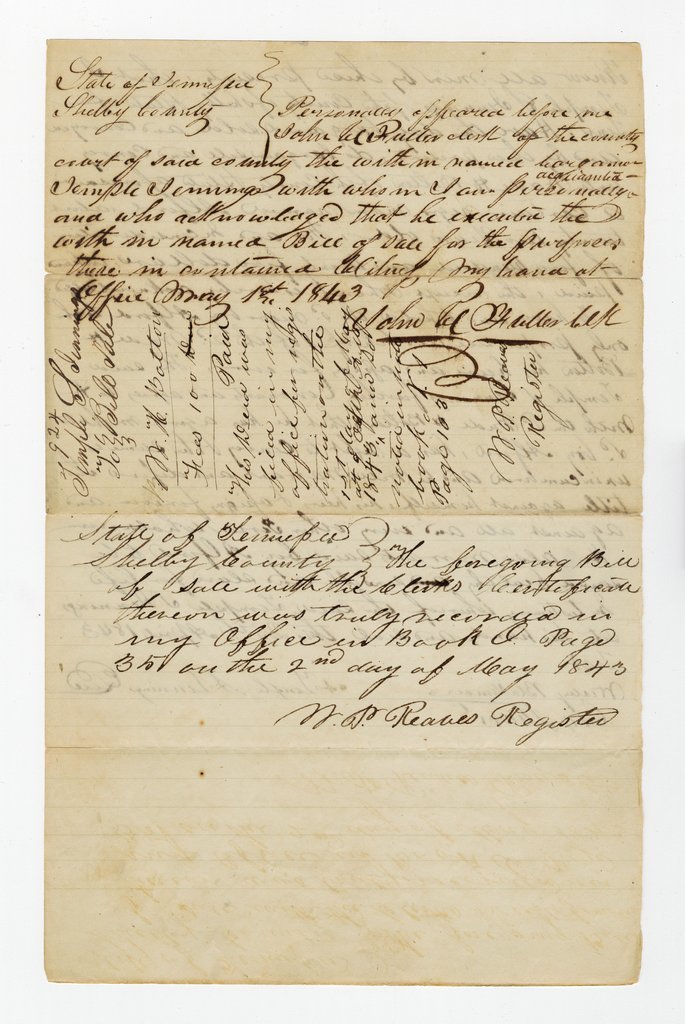 State of Tennessee
Shelby County
Personally appeared before me
John W Fuller clerk of the county
court of said county the with in named bargainor
acquainted
Temple Jennings with whom I am personally
and who acknowledged that he executed the
with in named Bill of Sale for the purposes
there in contained Witness My hand at
Office May 1st 1843
John W Fuller Clk
924
Temple S Jennings
To Bill Sale
W. H. Bolton
Fees 100
Paid
This Deed was
filed in my
office for regis
tration on the
1st day of May
1843 and
noted in note
book
Page 163
W. P. Reaves
Register
State of Tennessee
Shelby County The foregoing Bill
of Sale with the Clerks Certificate
thereon was truly recorded in
my Office in Book Page
35 on the 2nd day of May 1843
W. P. Reaves Register